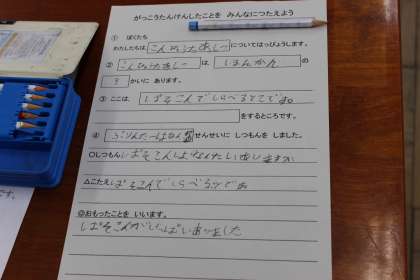 がっこうたんけんしたことを みんなにつたえよう
① ぼくたち
わたしたちは こんぴゅたあしつ についてはっぴょうします。
② こんぴゅたあしつ は ほんかん の
3 かいに あります。
③ ここは ぱそこんでしらべるとこです。
をするところです。
④ せんせいに しつもんを しました。
○しつもん ぱそこんはなんだいありますか
△こたえ ぱそこんでしらべるです
◎おもったことを いいます。
ぱそこんがいっぱいありました
です。